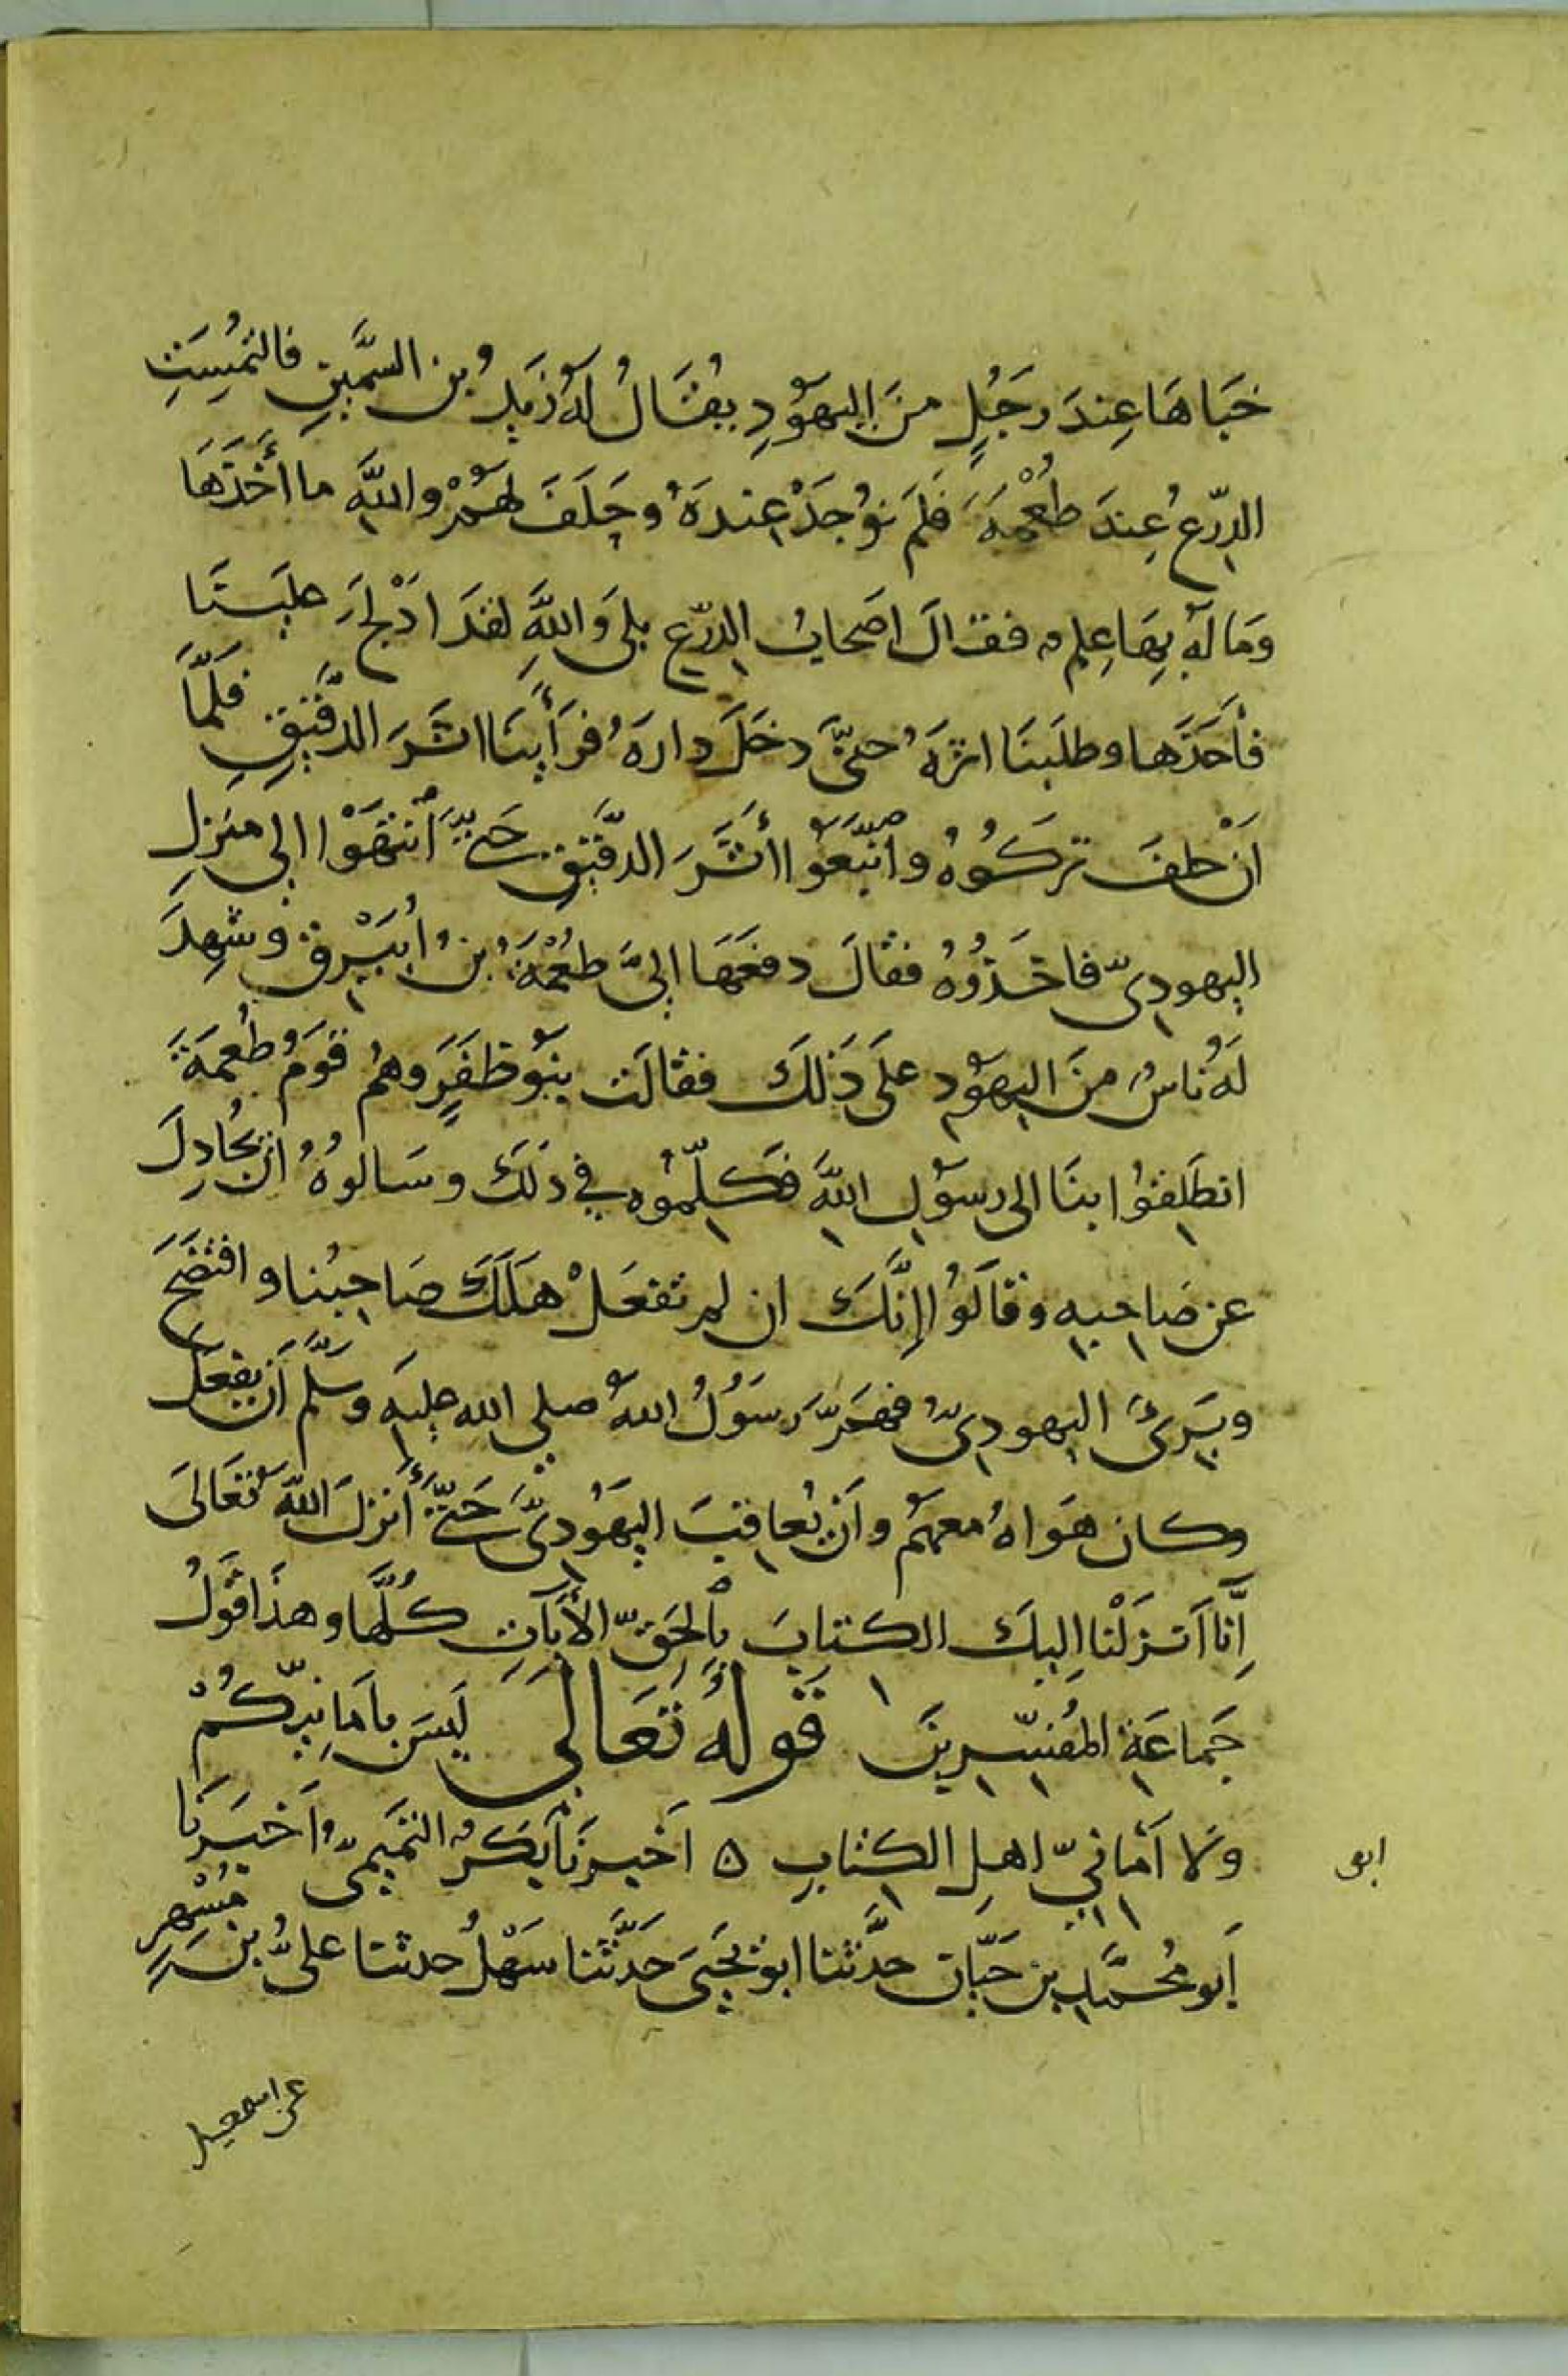 خَبَاهَا عِندَ رَجُلٍ مِنَ اليَهُوْدِ يُقَالُ لَهُ زَيدُ بن السَّمِينِ فالتُمِسَتِ
الدِّرْعُ عِندَ طُعْمَةَ فَلَم تُوْجَدْ عِندَهُ وحَلَفَ لَهُمْ والله ما أَخَذَهَا
وَمَا لَهُ بِهَا عِلم فقالَ اصَحابُ الدِّرْعِ بلى وَاللهِ لقدَ ادْلَجَ عليَنَا
فأَخَذَها وطلَبنَا اثرَهُ حتىَّ دخَلَ دارَهُ فرَأَينَا اثَرَ الدَّقِيقِ فَلَمَّا
انْ حلفَ تركُوُهُ وَاتَّبَعَوُا أثَرَ الدقَّيِقِ حَتىّ انتَهَوْا الى مَنزِلِ
اليهودىِّ فاخَذُوُهُ فقالَ دفعَهَا الىَّ طُعْمَةُ بنُ أُبَيْرِق وشهِدَ
لَهُ ناسُ مِنَ اليهَوُدِ علَى ذَلكَ فقالَت بنَوُ ظفَرٍ وهُم قوَمُ طُعمَةَ
انطَلِقوُا بنَا الى رسوُلِ اللهِ فَكلَّموُه فِي ذلكَ وسَالوُهُ ان يُجَادِلَ
عن صَاحبِه وقالَوُا إنَّكَ ان لم تفعَلْ هلَكَ صَاحبُنا وافتضَحَ
ويَبرىَ اليهودىُّ فهَمَّ رسَوُلُ اللهِ صلى الله عليَه وسَلَّم أن يفعَلَ
وكان هَواهُ معهم وأن يُعاقبَ اليهَوُدىَّ حَتىّ أنزلَ اللهُ تعَالىَ
اِنَّا أَنزَلْنا اليكَ الكتابَ بِالحَقِّ الأيَاتِ كُلَّها وهذَا قولُ
جَماعَةِ المُفسِّرينَ قَولهُ تعَالى لَيسَ بأمَانِيِّكُمْ
وَلا أمَانيِّ اهلِ الكِتابِ ه اخَبرنَا بَكر التَّمِيمىُّ اَخبَرنا
أبو مُحمَّد بن حَيّان حدَّثنا ابو يحَيىَ حَدَّثَنا سَهْلُ حدثنا علىُّ بنَ مُسْهِرٍ
ابو
عن اسمعيل